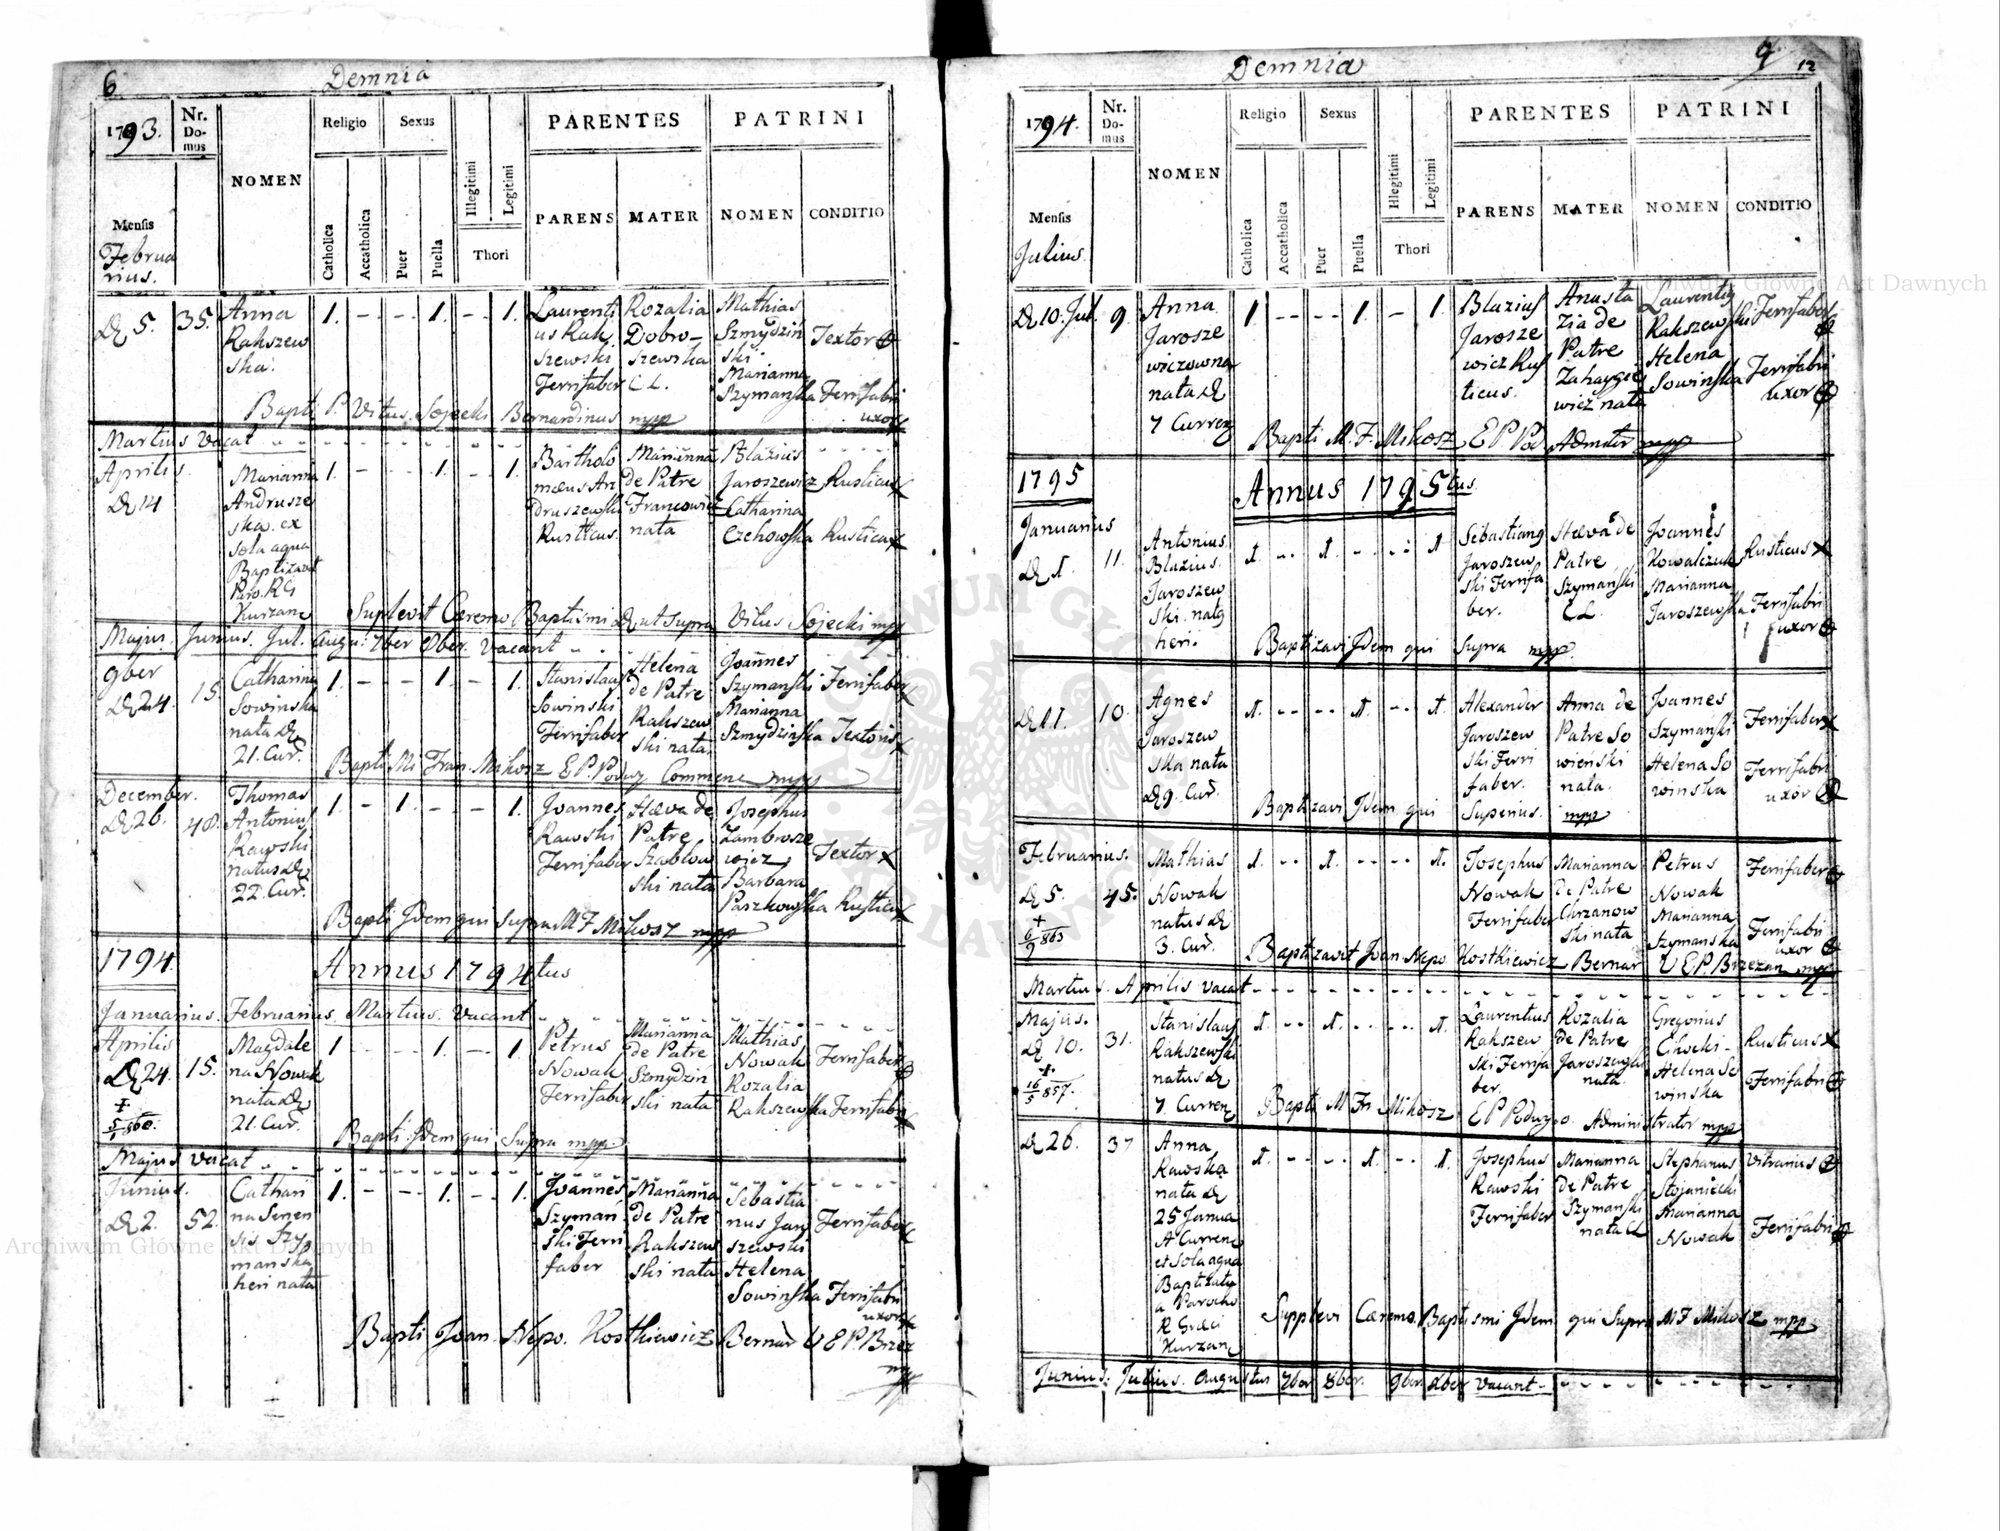 6
Demnia
1793.
Nr. Do-mus
NOMEN
Religio
Sexus
Illegitimi
Legitimi
PARENTES
PATRINI
Mensis
Catholica
Accatholica
Puer
Puella
Thori
PARENS
MATER
NOMEN
CONDITIO
Februa
rius.
D 5.
35.
Anna
Rakszew
ska.
1. - - 1. - 1.
Laurenti
us Rak
szewski
Ferrifaber
Rozalia
Dobro-
szewska
C L.
Mathias
Szmydziń
ski.
Marianna
Szymańska
Textor
Ferrifabri
uxor
Bapti P. Vitus Sojecki Bernardinus mpp
Martius vacat
Aprilis
D 14
Marianna
Andrusze
ska. ex
sola aqua
Baptizavit
Paro. RG
Kurzanc
1. - - 1. - 1.
Bartholo
mæus An
druszewski
Rusticus.
Marianna
de Patre
Francowicz
nata
Blazius
Jaroszewicz
Catharina
Czehowska
Rusticus
Rustica
Suplevit Caeremo Baptismi D ut Supra Vitus Sojecki mpp
Majus. Junius. Jul. Augu. 7ber 8ber. vacant
9ber
D 24.
15.
Catharina
Sowinska
nata D
21. Cur.
1. - - 1. - 1.
Stanislaus
Sowinski
Ferrifaber
Helena
de Patre
Rakszew
ski nata
Joannes
Szymanski
Marianna
Szmydzinska
Ferrifaber
Textoris
Bapti Mi Fran. Mikosz E P. Podwy Commene mpp
December.
D 26.
48.
Thomas
Antonius
Rawski
natus D
22. Cur.
1. - 1. - - 1.
Joannes
Rawski
Ferrifaber
Hæva de
Patre
Szablow
ski nata
Josephus
Zambrosze
wicz
Barbara
Paszkowska
Textor
Rustica
Bapti Idem qui supra M F Mikosz mpp
1794.
Annus 1794tus
Januarius. Februarius. Martius. vacant
Aprilis
D 24.
15.
5/1 860.
Magdale
na Nowak
nata D
21. Cur.
1 - - 1. - 1.
Petrus
Nowak
Ferrifaber
Marianna
de Patre
Szmydziń
ski nata
Mathias
Nowak
Rozalia
Rakszewska
Ferrifaber
Ferrifabri
Bapti. Idem qui Supra mpp.
Majus vacat
Junius.
D 2.
52.
Cathari
na Senen
sis Szy
manska
heri nata
1. - - 1. - 1.
Joannes
Szyman
ski Ferri
faber
Marianna
de Patre
Rakszew
ski nata
Sebastia
nus Jar
szewski
Helena
Sowinska
Ferrifaber
Ferrifabri
uxor
Bapti Joan. Nepo. Kostkiewicz Bernar V E P. Brzez
mpp
9
12
Demnia
1794.
Nr. Do-mus
NOMEN
Religio
Sexus
Illegitimi
Legitimi
PARENTES
PATRINI
Mensis
Catholica
Accatholica
Puer
Puella
Thori
PARENS
MATER
NOMEN
CONDITIO
Julius.
D 10. Jul.
9.
Anna
Jarosze
wiczowna
nata D
7 Curren
1 - - 1. - 1.
Blazius
Jarosze
wicz Rus
ticus.
Anasta
zia de
Patre
wicz nata
Laurentius
Rakszewski
Helena
Sowinska
Ferrifaber
Ferrifabri
uxor
Bapti M. F. Mikosz E P Pod Admstr mpp
1795
Annus 1795tus
Januarius
D 1.
11.
Antonius
Blazius.
Jaroszew
ski. natg
heri.
1. - 1. - - 1
Sebastiang
Jaroszew
ski Ferrifa
ber.
Hæva de
Patre
Szymański
C L.
Joannes
Kowalczuk
Marianna
Jaroszewska
Rusticus
Ferrifabri
uxor
Baptizavi Idem qui Supra mpp.
D 11.
10.
Agnes
Jaroszew
ska nata
D 9. Cur.
1. - - 1. - 1.
Alexander
Jaroszew
ski Ferri
faber.
Anna de
Patre So
wienski
nata.
Joannes
Szymański
Helena So
winska
Ferrifaber
Ferrifabri
uxor
Baptizavi Idem qui Superius. mpp
Februarius.
D 5.
45.
6/9 863
Mathias
Nowak
natus D
3. Cur.
1. - 1. - - 1.
Josephus
Nowak
Ferrifaber
Marianna
de Patre
Chrzanow
ski nata
Petrus
Nowak
Marianna
Szymanska
Ferrifaber
Ferrifabri
uxor
Baptizavit Joan. Nepo. Kostkiewicz Bernar V E P Brzezan mpp
Martius. Aprilis vacat
Majus.
D 10.
31.
16/5 857.
Stanislaus
Rakszewski
natus D
7. Curren
1. - 1. - - 1.
Laurentius
Rakszew
ski Ferrifa
ber.
Rozalia
de Patre
Jaroszewski
nata.
Gregorius
Helena So
winska
Rusticus
Ferrifabri
Bapti M Fr Mikosz E P Podwyso. Administrator mpp
D 26.
37
Anna
Rawska
nata D
25 Janua
A Curren
et sola aqua
Baptizata
a Parocho
R Græci
Kurzanc
1. - - 1. - 1.
Josephus
Rawski
Ferrifaber
Marianna
de Patre
Szymanski
nata CL
Stephanus
Stojaniecki
Marianna
Nowak
Vitranius
Ferrifabri
Supplevi Cæremo. Baptismi Idem qui Supra M F Mikosz mpp
Junius. Julius. Augustus 7ber 8ber. 9ber. Xber vacant
Archiwum Główne Akt Dawnych
Archiwum Główne Akt Dawnych
ARCHIWUM GŁÓWNE AKT DAWNYCH